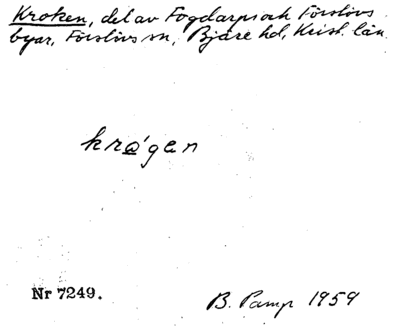 Kroken, del av Fogdarps och Förslövs
byar, Förslövs sn, Bjäre hd, Krist. län.
krǫ́gen
Nr 7249.
B. Pamp 1959